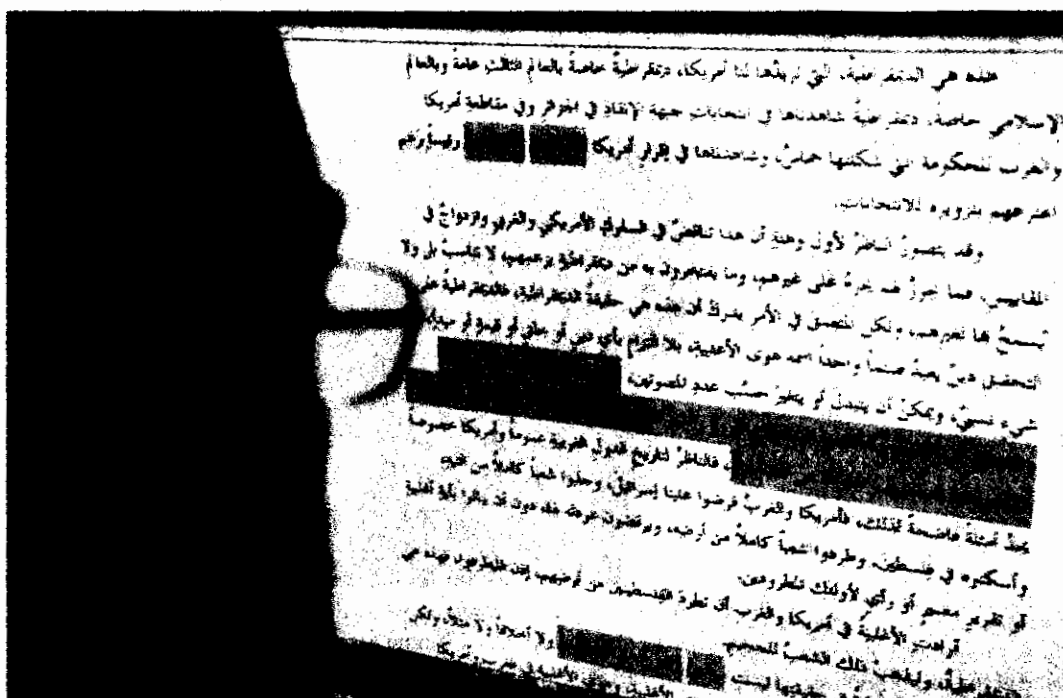 هذه هي الديمقراطية، التي تريدُها لنا أمريكا، ديمقراطيةٌ خاصةٌ بالعالمِ الثالثِ عامةً وبالعالمِ
الإسلامي خاصةً، ديمقراطيةٌ شاهدناها في انتخاباتِ جبهةِ الإنقاذِ في الجزائرِ وفي مقاطعةِ أمريكا
والغرب للحكومة التي شكلتها حماسُ، وشاهدناها في إقرارِ أمريكا رئيساً رغم
اعترافهم بتزويره للانتخابات.
وقد يتصورُ الناظرُ لأولِ وهلةٍ أن هذا تناقضٌ في السلوكِ الأمريكي والغربي وازدواجٌ في
المقاييس، فما يجوزُ لهم يحرمُ على غيرهم، وما يفتخرون به من ديمقراطيةٍ بزعمهم، لا تناسبُ بل ولا
يُسمحُ بها لغيرهم، ولكن المتمعن في الأمرِ يدركُ أن هذه هي حقيقةُ الديمقراطيةِ، فالديمقراطيةُ على
التحقيقِ دينٌ يعبدُ صنماً واحداً اسمه هوى الأغلبيةِ، بلا التزامٍ بأي دينٍ أو خلقٍ أو قيمةٍ أو مبدأ،
شيء نسبيٌ، ويمكنُ أن يتبدلَ أو يتغيرَ حسبَ عددِ المصوتين،
فالناظرُ لتاريخِ الدولِ الغربيةِ عموماً وأمريكا خصوصاً
يجدُ أمثلةً فاضحةً لذلك، فأمريكا والغربُ فرضوا علينا إسرائيلَ، وجلبوا شعباً كاملاً من
وأسكنوه في فلسطين، وطردوا شعباً كاملاً من أرضه، ويرفضون عودته هذه دون أن بأيةِ أغلبيةٍ
أو تقريرِ مصيرٍ أو رأيٍ لأولئك المطرودين.
أرادت الأغلبيةُ في أمريكا والغرب أن تطردَ الفلسطينيين من أرضهم، إذن فليطردوا، فهذه هي
وليذهبْ ذلك الشعبُ للجحيم.
ليست ولا أخلاقاً ولا مثلاً، ولكن
الأغلبيةِ في الغرب وأمريكا